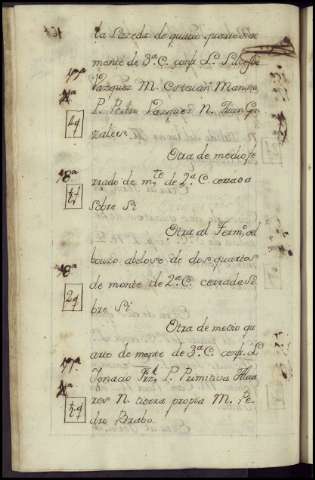 la Pareda de quatro quartos de
monte de 3ª C. confª L.
Vazquez M. Estevan Manso
P. Pedro Vazquez N. Juan Gon
zalez.
4q
Otra de medio fe
rrado de mte de 2ª C. cerrado
sobre Si
Otra al
bouzo de dos quartos
de monte de 2ª C. cerrada So
bre Si
2q
Otra de medio qu
arto de monte de 3ª C. confª L.
Ignacio Frz P. Primitiva Alva
rez N. tierra propia M. Pe
dro Brabo.